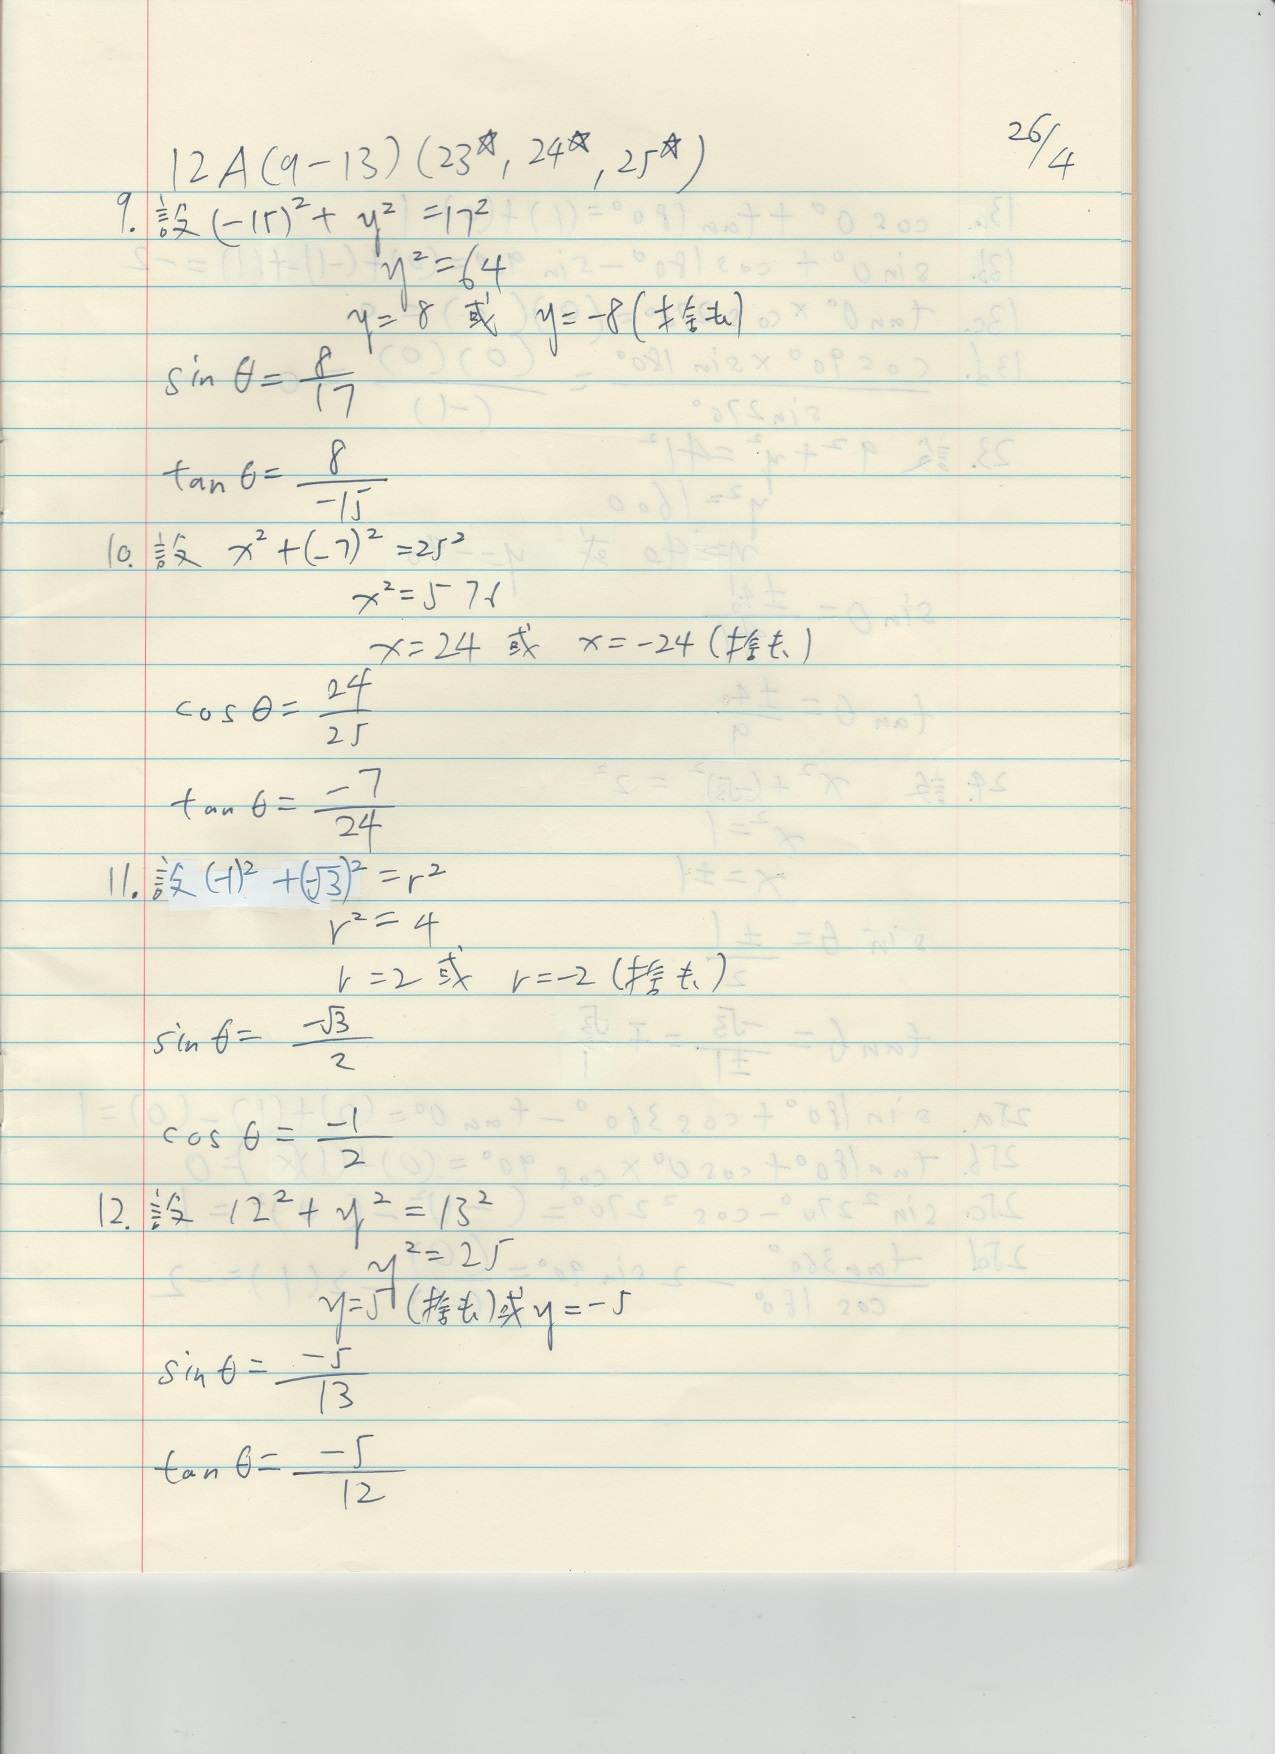 26/4
12A(9-13)(23☆, 24☆, 25☆)
9. 設 (-15)² + y² = 17²
y² = 64
y = 8 或 y = -8 (捨去)
sin θ = 8/17
tan θ = 8/-15
10. 設 x² + (-7)² = 25²
x² = 576
x = 24 或 x = -24 (捨去)
cos θ = 24/25
tan θ = -7/24
11. 設 (-1)² + (-√3)² = r²
r² = 4
r = 2 或 r = -2 (捨去)
sin θ = -√3/2
cos θ = -1/2
12. 設 12² + y² = 13²
y² = 25
y = 5 (捨去) 或 y = -5
sin θ = -5/13
tan θ = -5/12